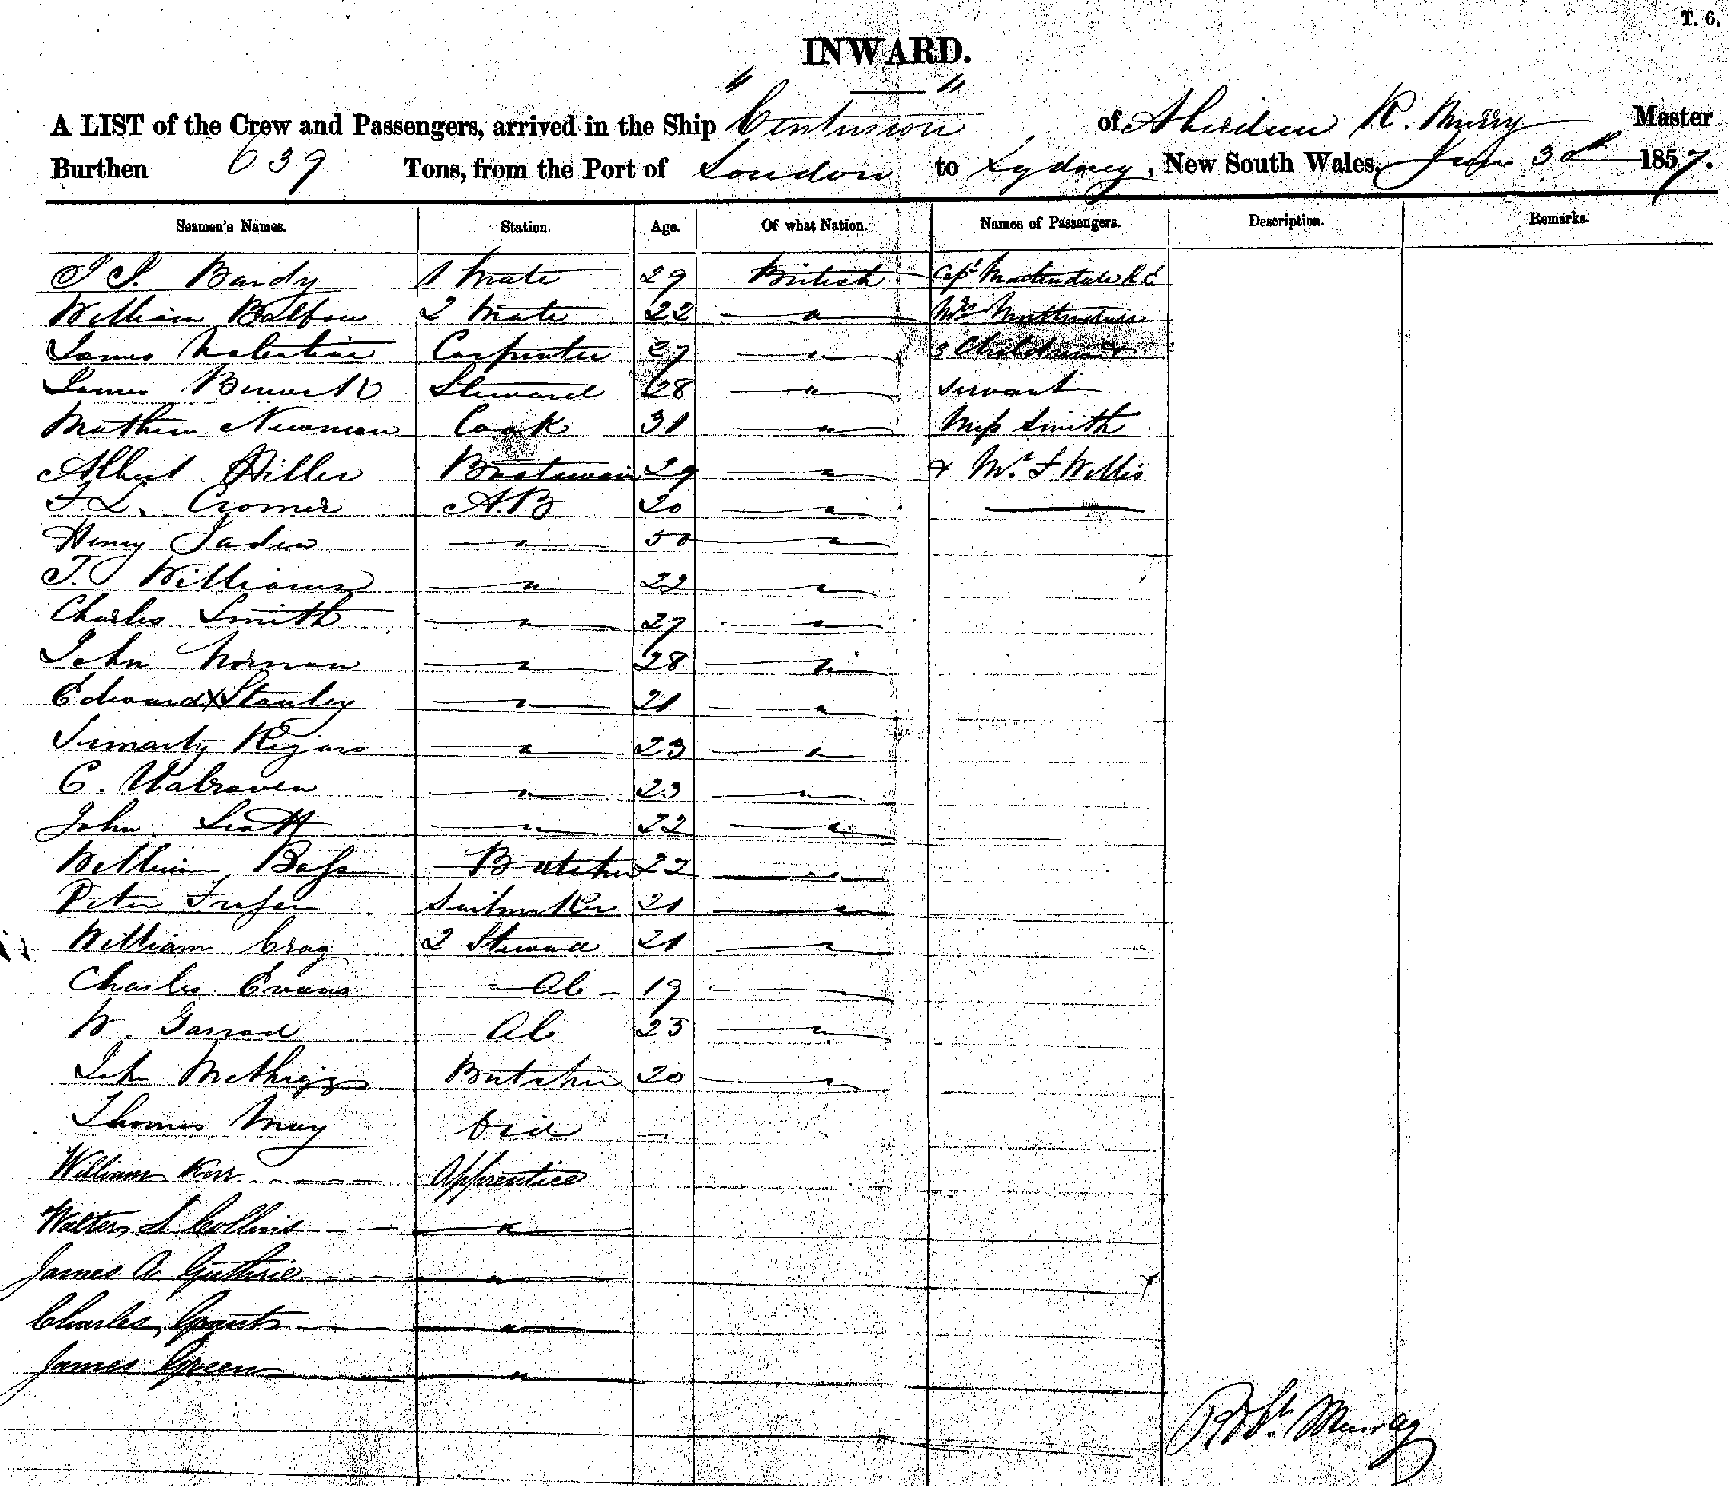 T. 6.
INWARD.
A LIST of the Crew and Passengers, arrived in the Ship "Centurion" of Aberdeen R. Murry Master
Burthen 639 Tons, from the Port of London to Sydney, New South Wales, June 3d 1857.
Seamen's Names. Station. Age. Of what Nation. Names of Passengers. Description. Remarks.
Bandy 1 Mate 29 British Capt Martindale R.E
William Balfour 2 Mate 22 " Mrs Martindale
James Valentine Carpenter 27 " 3 Children &
James Steward 28 " servant
Mathew Newman Cook 31 " Miss Smith
Albert Hiller Boatswain 29 " & Mr. F Willis
F L. Cromer AB 20 "
Henry " 50 "
T. Williams " 22 "
Charles Smith " 27 "
John Norman " 28 "
Edward X Stanley " 21 "
" 23 "
C. Walraven " 23 "
John Scott " 22 "
William Bass Butcher 22 "
Peter Fraser Sailmaker 21 "
William Crag 2 Steward 21 "
Charles Evans Ab 19
W. Garrad Ab 25 "
John Butcher 20 "
Thomas May
William Kerr Apprentice
Walter S Collins "
James A Guthrie "
Charles Grant "
James Green "
Robt. Murray